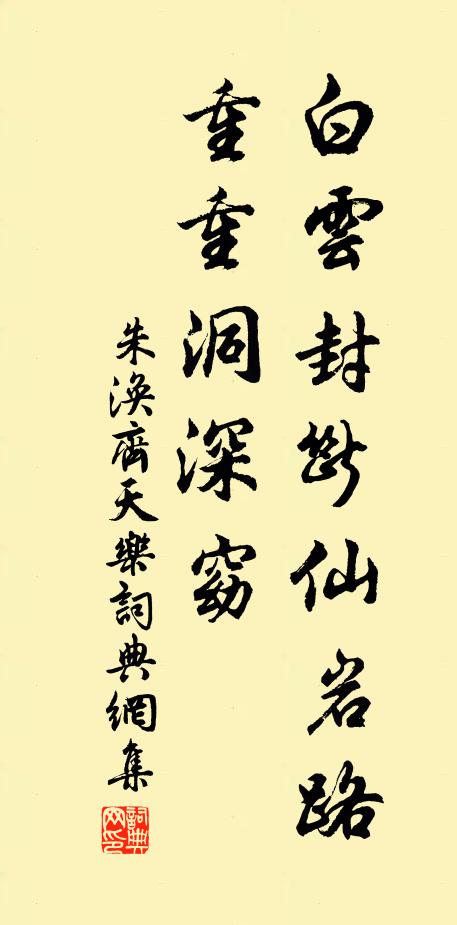 白雲封斷仙岩路
重重洞深窈
朱渙齊天樂詞典網集
詞典
网印